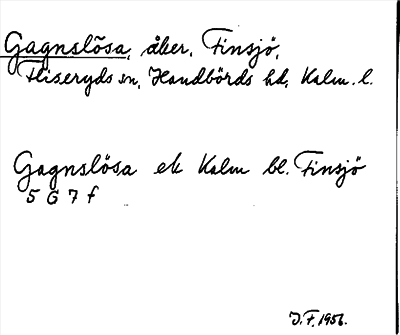 Gagnslösa, åker, Finsjö,
Fliseryds sn, Handbörds hd, Kalm. l.
Gagnslösa ek Kalm bl. Finsjö
5 G 7 f
J. F. 1956.